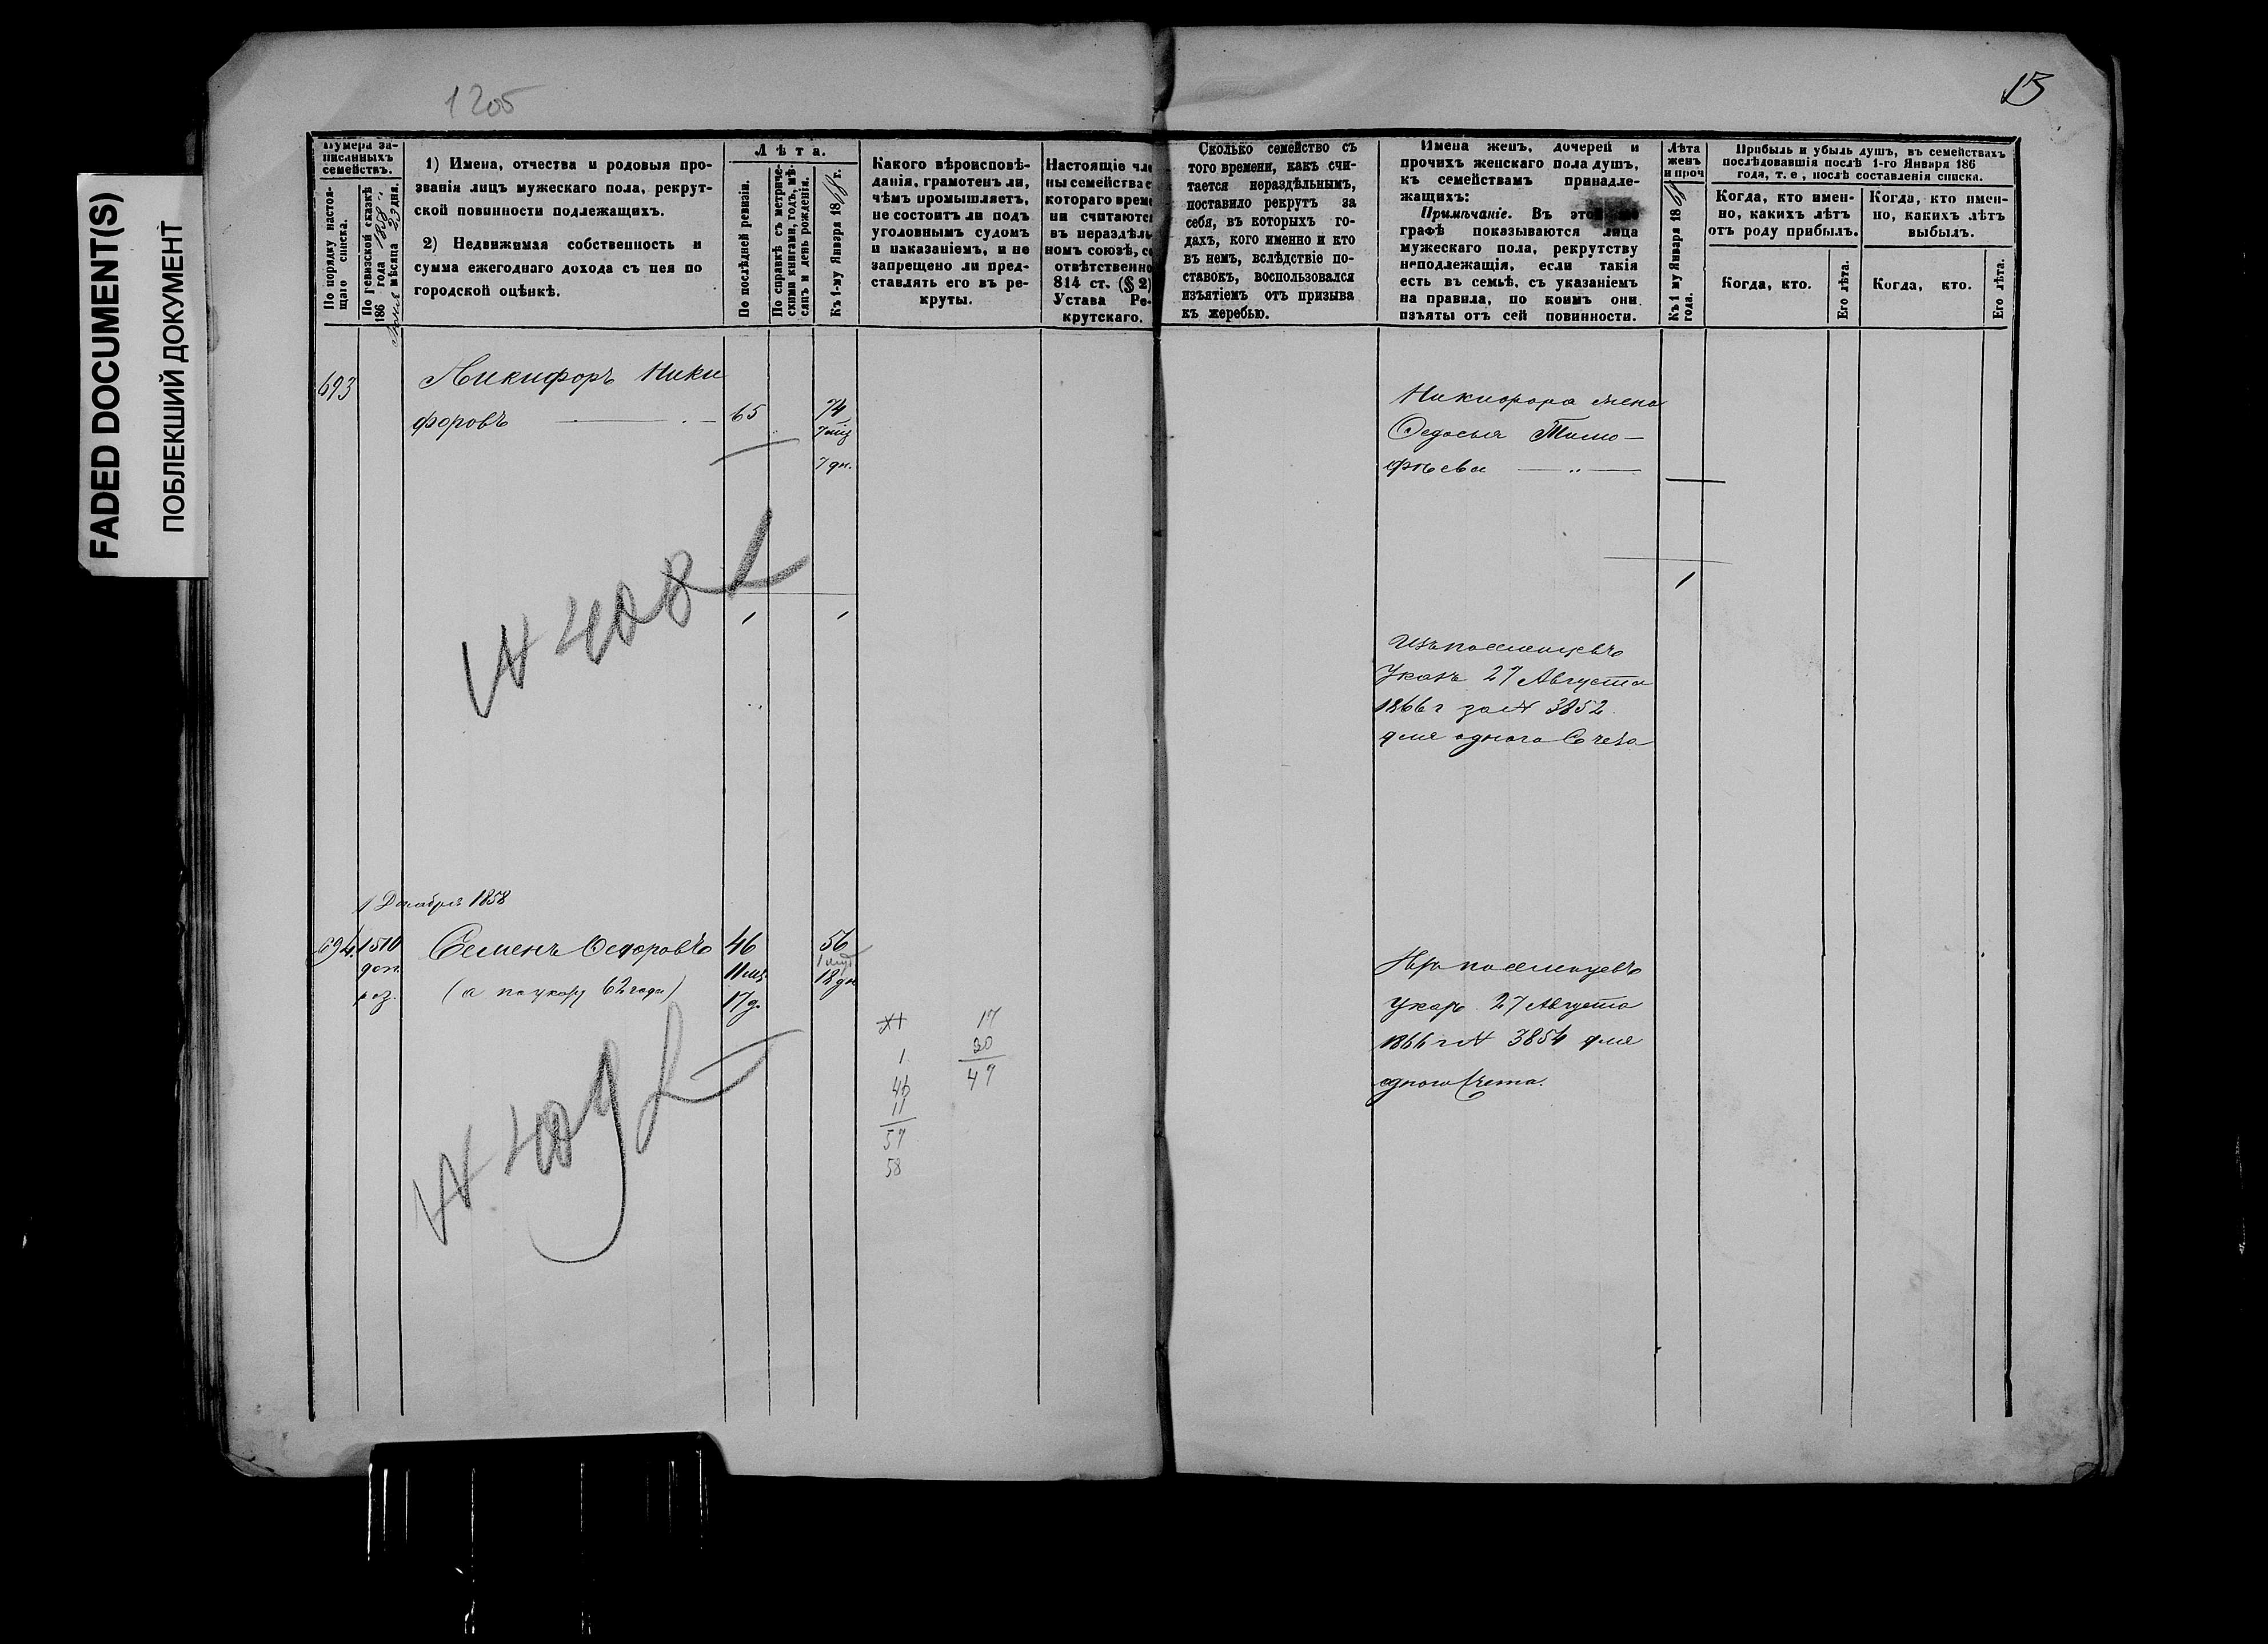 FADED DOCUMENT(S)
ПОБЛЕКШИЙ ДОКУМЕНТ
1205
13
Нумера за-
писанныхъ
семействъ.
По порядку настоя-
щаго списка.
По ревизской сказкѣ
186 года 1858
мѣсяца 23 дня.
1) Имена, отчества и родовыя про-
званія лицъ мужескаго пола, рекрут-
ской повинности подлежащихъ.
2) Недвижимая собственность и
сумма ежегоднаго дохода съ нея по
городской оцѣнкѣ.
Лѣта.
По послѣдней ревизіи.
По справкѣ съ метриче-
скими книгами, годъ, мѣ-
сяцъ и день рожденія.
Къ 1-му Января 1868 г.
Какого вѣроисповѣ-
данія, грамотенъ ли,
чѣмъ промышляетъ,
не состоитъ ли подъ
уголовнымъ судомъ
и наказаніемъ, и не
запрещено ли пред-
ставлять его въ ре-
круты.
Настоящіе чле
ны семейства с
котораго време
ни считаются
въ нераздѣль
номъ союзѣ, со
отвѣтственно
814 ст. (§ 2)
Устава Ре-
крутскаго.
Сколько семейство съ
того времени, какъ счи-
тается нераздѣльнымъ,
поставило рекрутъ за
себя, въ которыхъ го-
дахъ, кого именно и кто
въ немъ, вслѣдствіе по-
ставокъ, воспользовался
изъятіемъ отъ призыва
къ жеребью.
Имена женъ, дочерей и
прочихъ женскаго пола душъ,
къ семействамъ принадле-
жащихъ:
Примѣчаніе. Въ этой
графѣ показываются лица
мужескаго пола, рекрутству
неподлежащія, если такія
есть въ семьѣ, съ указаніемъ
на правила, по коимъ они
изъяты отъ сей повинности.
Лѣта
женъ
и проч
Къ 1 му Января 1868
года.
Прибыль и убыль душъ, въ семействахъ
послѣдовавшія послѣ 1-го Января 186
года, т. е., послѣ составленія списка.
Когда, кто имен-
но, какихъ лѣтъ
отъ роду прибылъ.
Когда, кто имен-
но, какихъ лѣтъ
выбылъ.
Когда, кто.
Его лѣта.
Когда, кто.
Его лѣта.
693
Никифоръ Ники
форовъ
65
74
7 мц
7 дн.
Никифора жена
Федосья Тимо—
фѣева
1
1
1
№ 408
Изъ поселенцевъ
Указъ 27 Августа
1866 г за № 3852
для одного Счета
1 Декабря 1858
694.
1510
доп.
Семенъ Федоровъ
(а по указу 62 года)
46
11 мц
17 д.
56
18 дн
Изъ поселенцевъ
Указъ 27 Августа
1866 г № 3854 для
одного Счета.
№ 409
XI
1
46
11
57
58
17
30
47